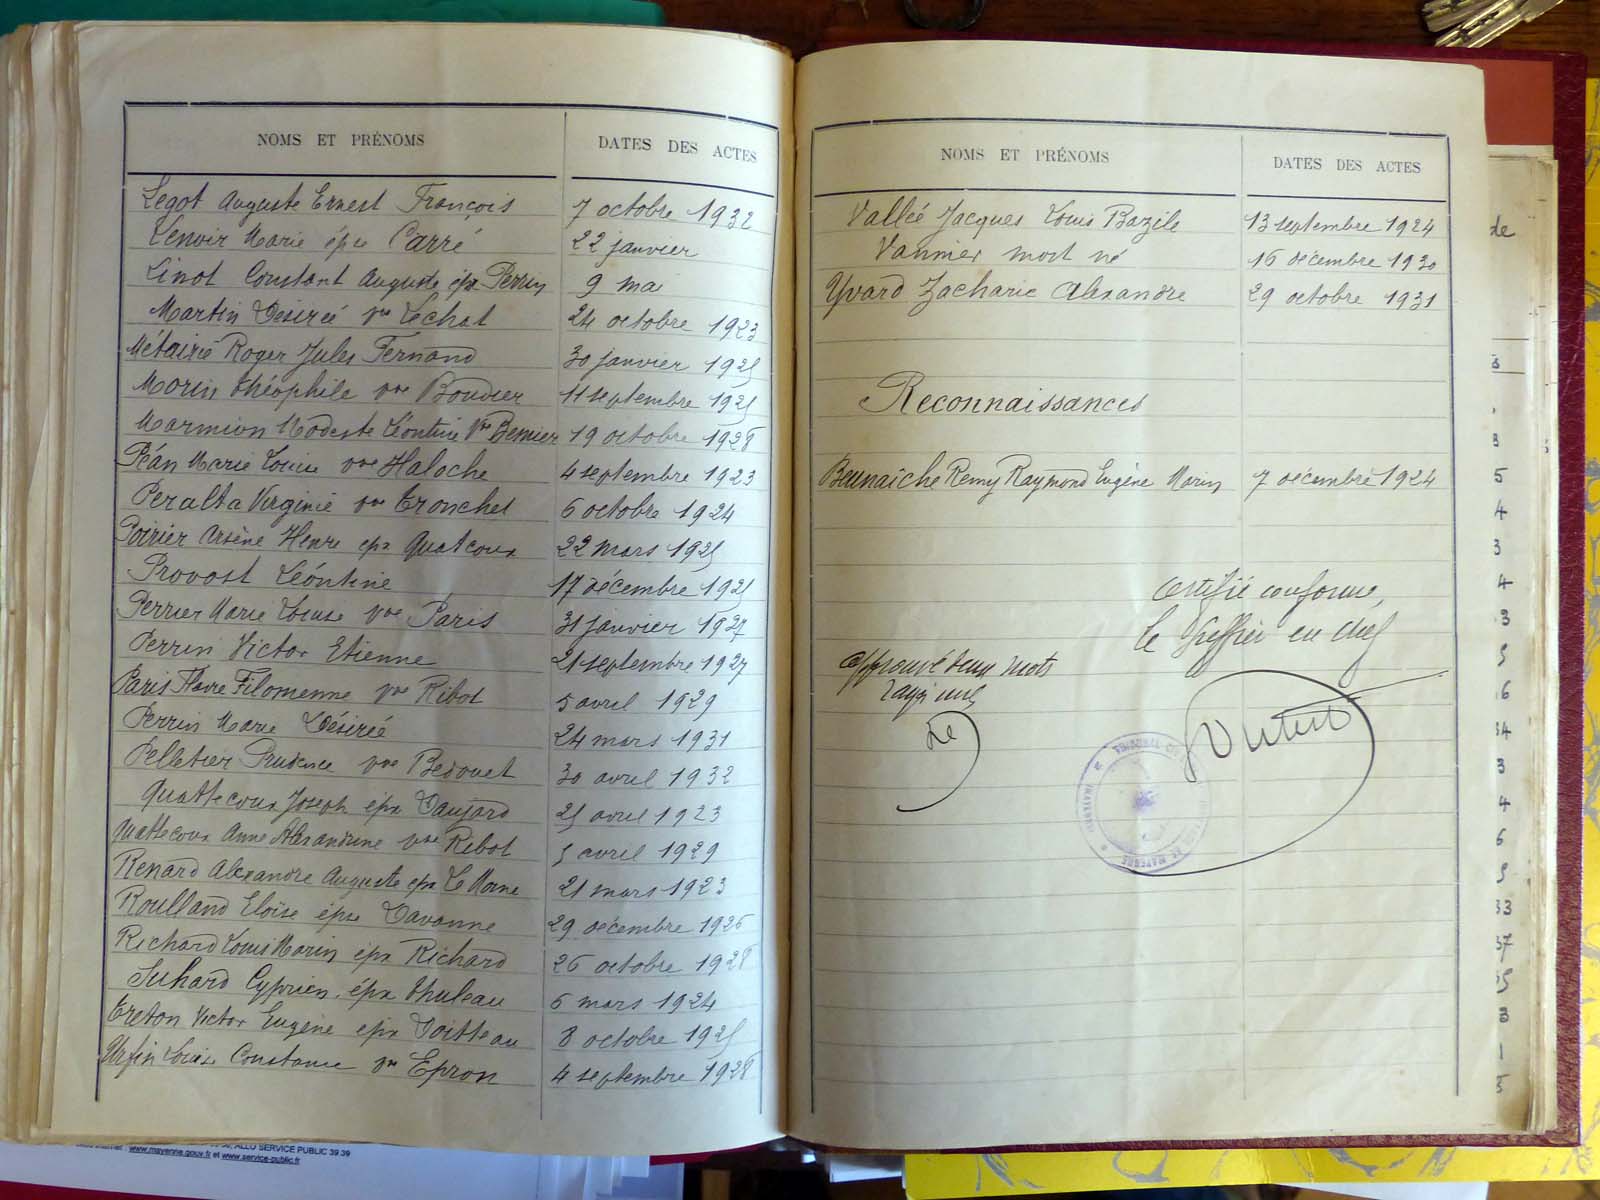 NOMS ET PRÉNOMS DATES DES ACTES
Legot Auguste Ernest François 7 octobre 1932
Lenoir Marie épse Carré 22 janvier
Linot Constant Auguste épx Perrin 9 mai
Martin Désirée vve Lechat 24 octobre 1923
Métairié Roger Jules Fernand 30 janvier 1925
Morin théophile vve Boudier 11 septembre 1925
Marmion Modeste Léontine Vve Bernier 19 octobre 1928
Péan Marie Louise vve Haloche 4 septembre 1923
Peralta Virginie vve Tronchet 6 octobre 1924
Poirier Arsène Henre epx Quatcoux 22 mars 1925
Provost Léontine 17 décembre 1925
Perrier Marie Louise vve Paris 31 janvier 1927
Perrin Victor Etienne 21 septembre 1927
Paris Filomenne vve Ribot 5 avril 1929
Perrin Marie Désirée 24 mars 1931
Pelletier Prudence vve Bedouet 30 avril 1932
Quattecoux Joseph épx Daujard 25 avril 1923
Quattecoux Anne Alexandrine vve Ribot 5 avril 1929
Renard Alexandre Auguste epx Le Morne 21 mars 1923
Roulland Eloïse épse Davanne 29 décembre 1926
Richard Louis Marin épx Richard 26 octobre 1928
Suhard Cyprien épx thuleau 6 mars 1924
Creton Victor Eugène epx Doitteau 8 octobre 1925
Urfin Louise Constance vve Epron 4 septembre 1928
NOMS ET PRÉNOMS DATES DES ACTES
Vallée Jacques Louis Bazile 13 septembre 1924
Vannier mort né 16 décembre 1930
Yvard Zacharie Alexandre 29 octobre 1931
Reconnaissances
Beunaiche Remy Raymond Eugène Marin 7 décembre 1924
Certifié conforme,
le Greffier en chef
approuvé deux mots
rayés nuls
de
3
3
5
4
3
4
3
5
6
34
3
4
6
5
33
37
35
3
1
5
ALLO SERVICE PUBLIC 39 39
www.mayenne.gouv.fr et www.service-public.fr